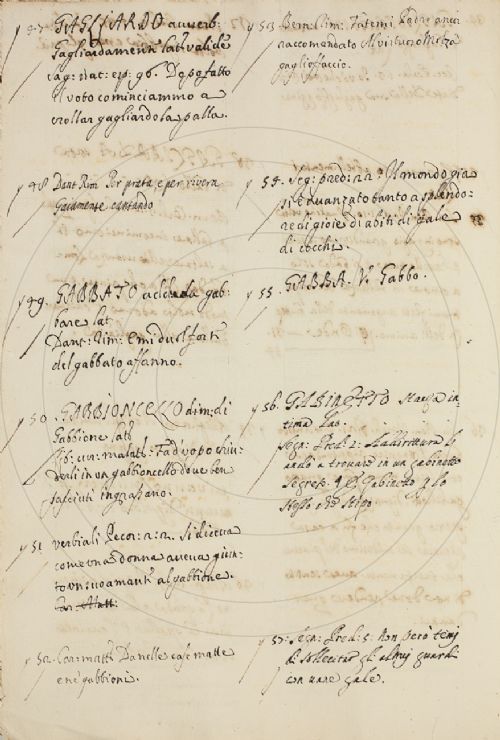 47. GAGLIARDO avverb:
Gagliardamente lat: valide
sag: nat: esp: 96. Dopo fatto
il voto cominciammo a
crollar gagliardo la palla.
48 Dant Rim Per prata, e per rivera
Gaiamente cantando
49. GABBATO add: da gab:
bare lat
Dant: Rim: E mi duol forte
del gabbato affanno.
50. GABBIONCELLO dim: di
Gabbione lat:
lib: cur: malatt: Fa d'vopo chiu:
derli in un gabbioncello dove ben
pasciuti ingrassano.
51 verbiali Pecor: 2: 2. Si diceva
come una donna aveva giun:
to un suo amante al gabbione.
Car: Matt:
52. Car: matt: Da nelle case matte
e ne' gabbioni.
53. Bern: Rim: Fatemi Padre ancor
raccomandato
gaglioffaccio.
54. Seg: pred: 22: Il mondo già
si è avanzato tanto a splendo:
re di gioie di abiti di gale
di cocchi.
55. GABBA. V. Gabbo.
56. GABINETTO Stanza in:
tima lat:
Segn: Pred: 2: Addirittura
andò a trovare in un gabinetto
segreto.
57: Segn: Pred: 5. Non però temi
di sollecitar gli altrui guardi
con vane gale.